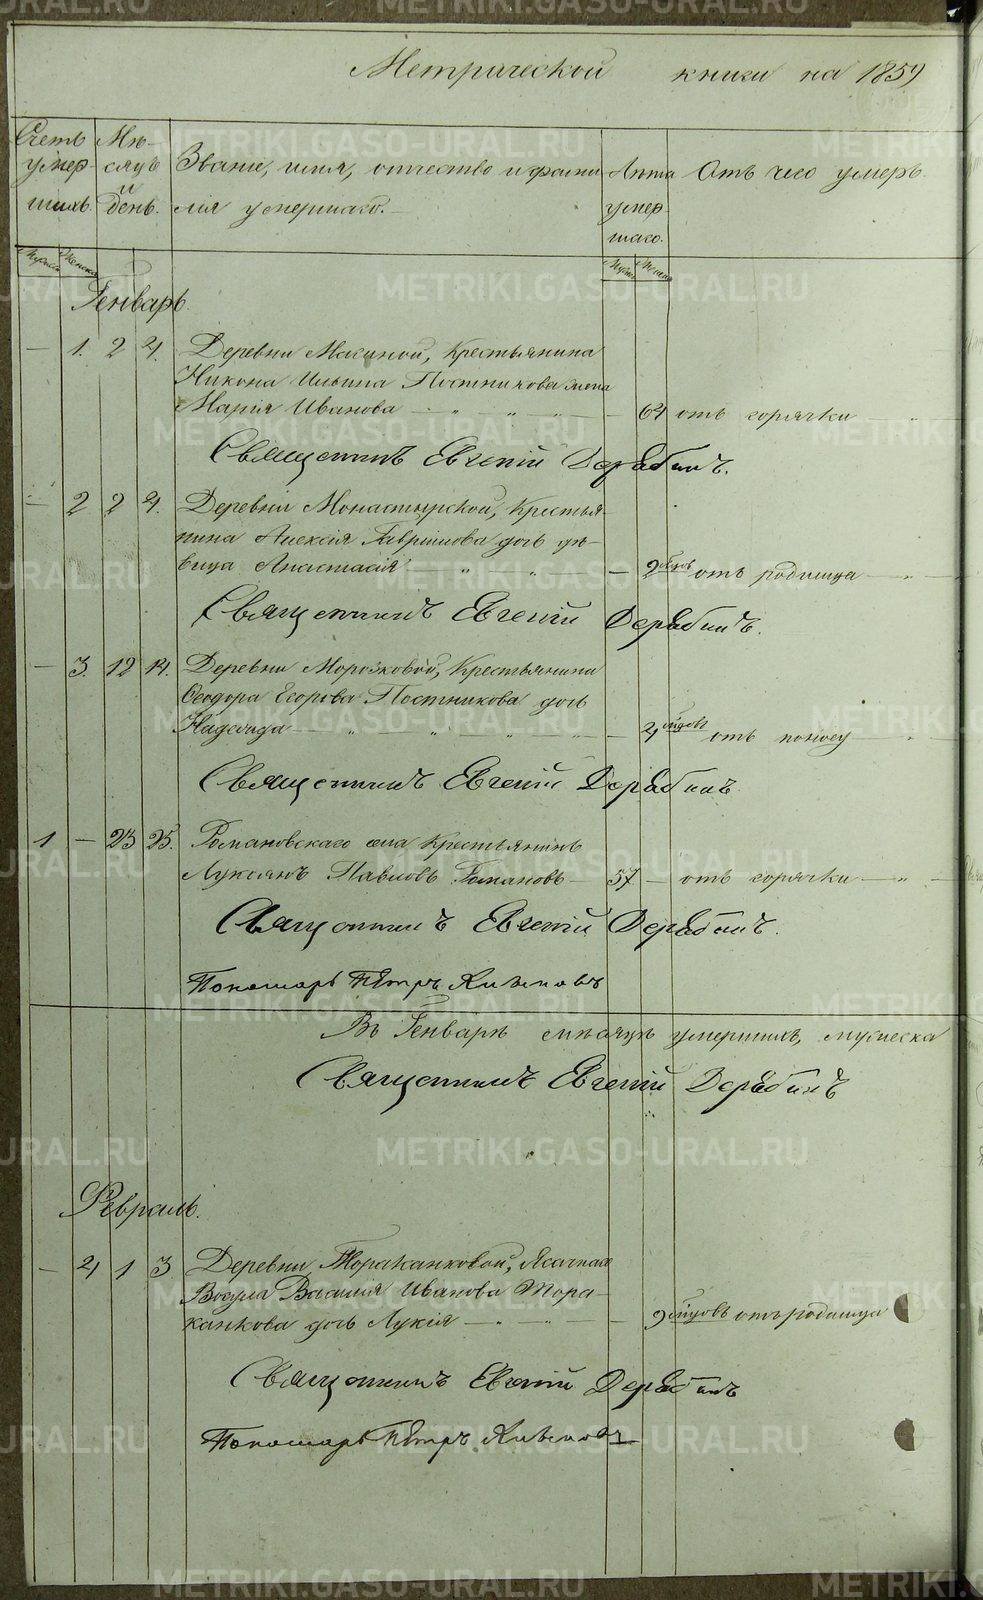 Метрической книги на 1859
Счетъ умер-шихъ.
Мѣ-сяцъ и день.
Званіе, имя, отчество и фами
лія умершаго.
Лѣта умер-шаго.
Отъ чего умеръ.
Генварь.
— 1. 2 4. Деревни Макиной, Крестьянина
Никона Ильина Постникова жена
Марія Иванова — 64 отъ горячки
Священникъ Евгеній Дерябинъ.
— 2 2 4. Деревни Монастырской, Крестья-
нина Алексія Гаврилова дочь дѣ-
вица Анастасія — 9 мѣсцовъ отъ родимца
Священникъ Евгеній Дерябинъ.
— 3. 12 14. Деревни Морозковой, Крестьянина
Ѳеодора Егорова Постникова дочь
Надежда — 4 отъ поносу
Священникъ Евгеній Дерябинъ
1 — 23 25. Романовскаго села Крестьянинъ
Лукіанъ Павловъ Романовъ — 57 — отъ горячки
Священникъ Евгеній Дерябинъ.
Пономарь Петръ
Въ Генварѣ мѣсяцѣ умершихъ, мужеска
Священникъ Евгеній Дерябинъ
Февраль.
— 4 1 3 Деревни Тораканковой, Ясачнаго
Вогула Василія Иванова Тора-
канкова дочь Лукія — 9 отъ родимца
Священникъ Евгеній Дерябинъ
Пономарь Петръ
METRIKI.GASO-URAL.RU